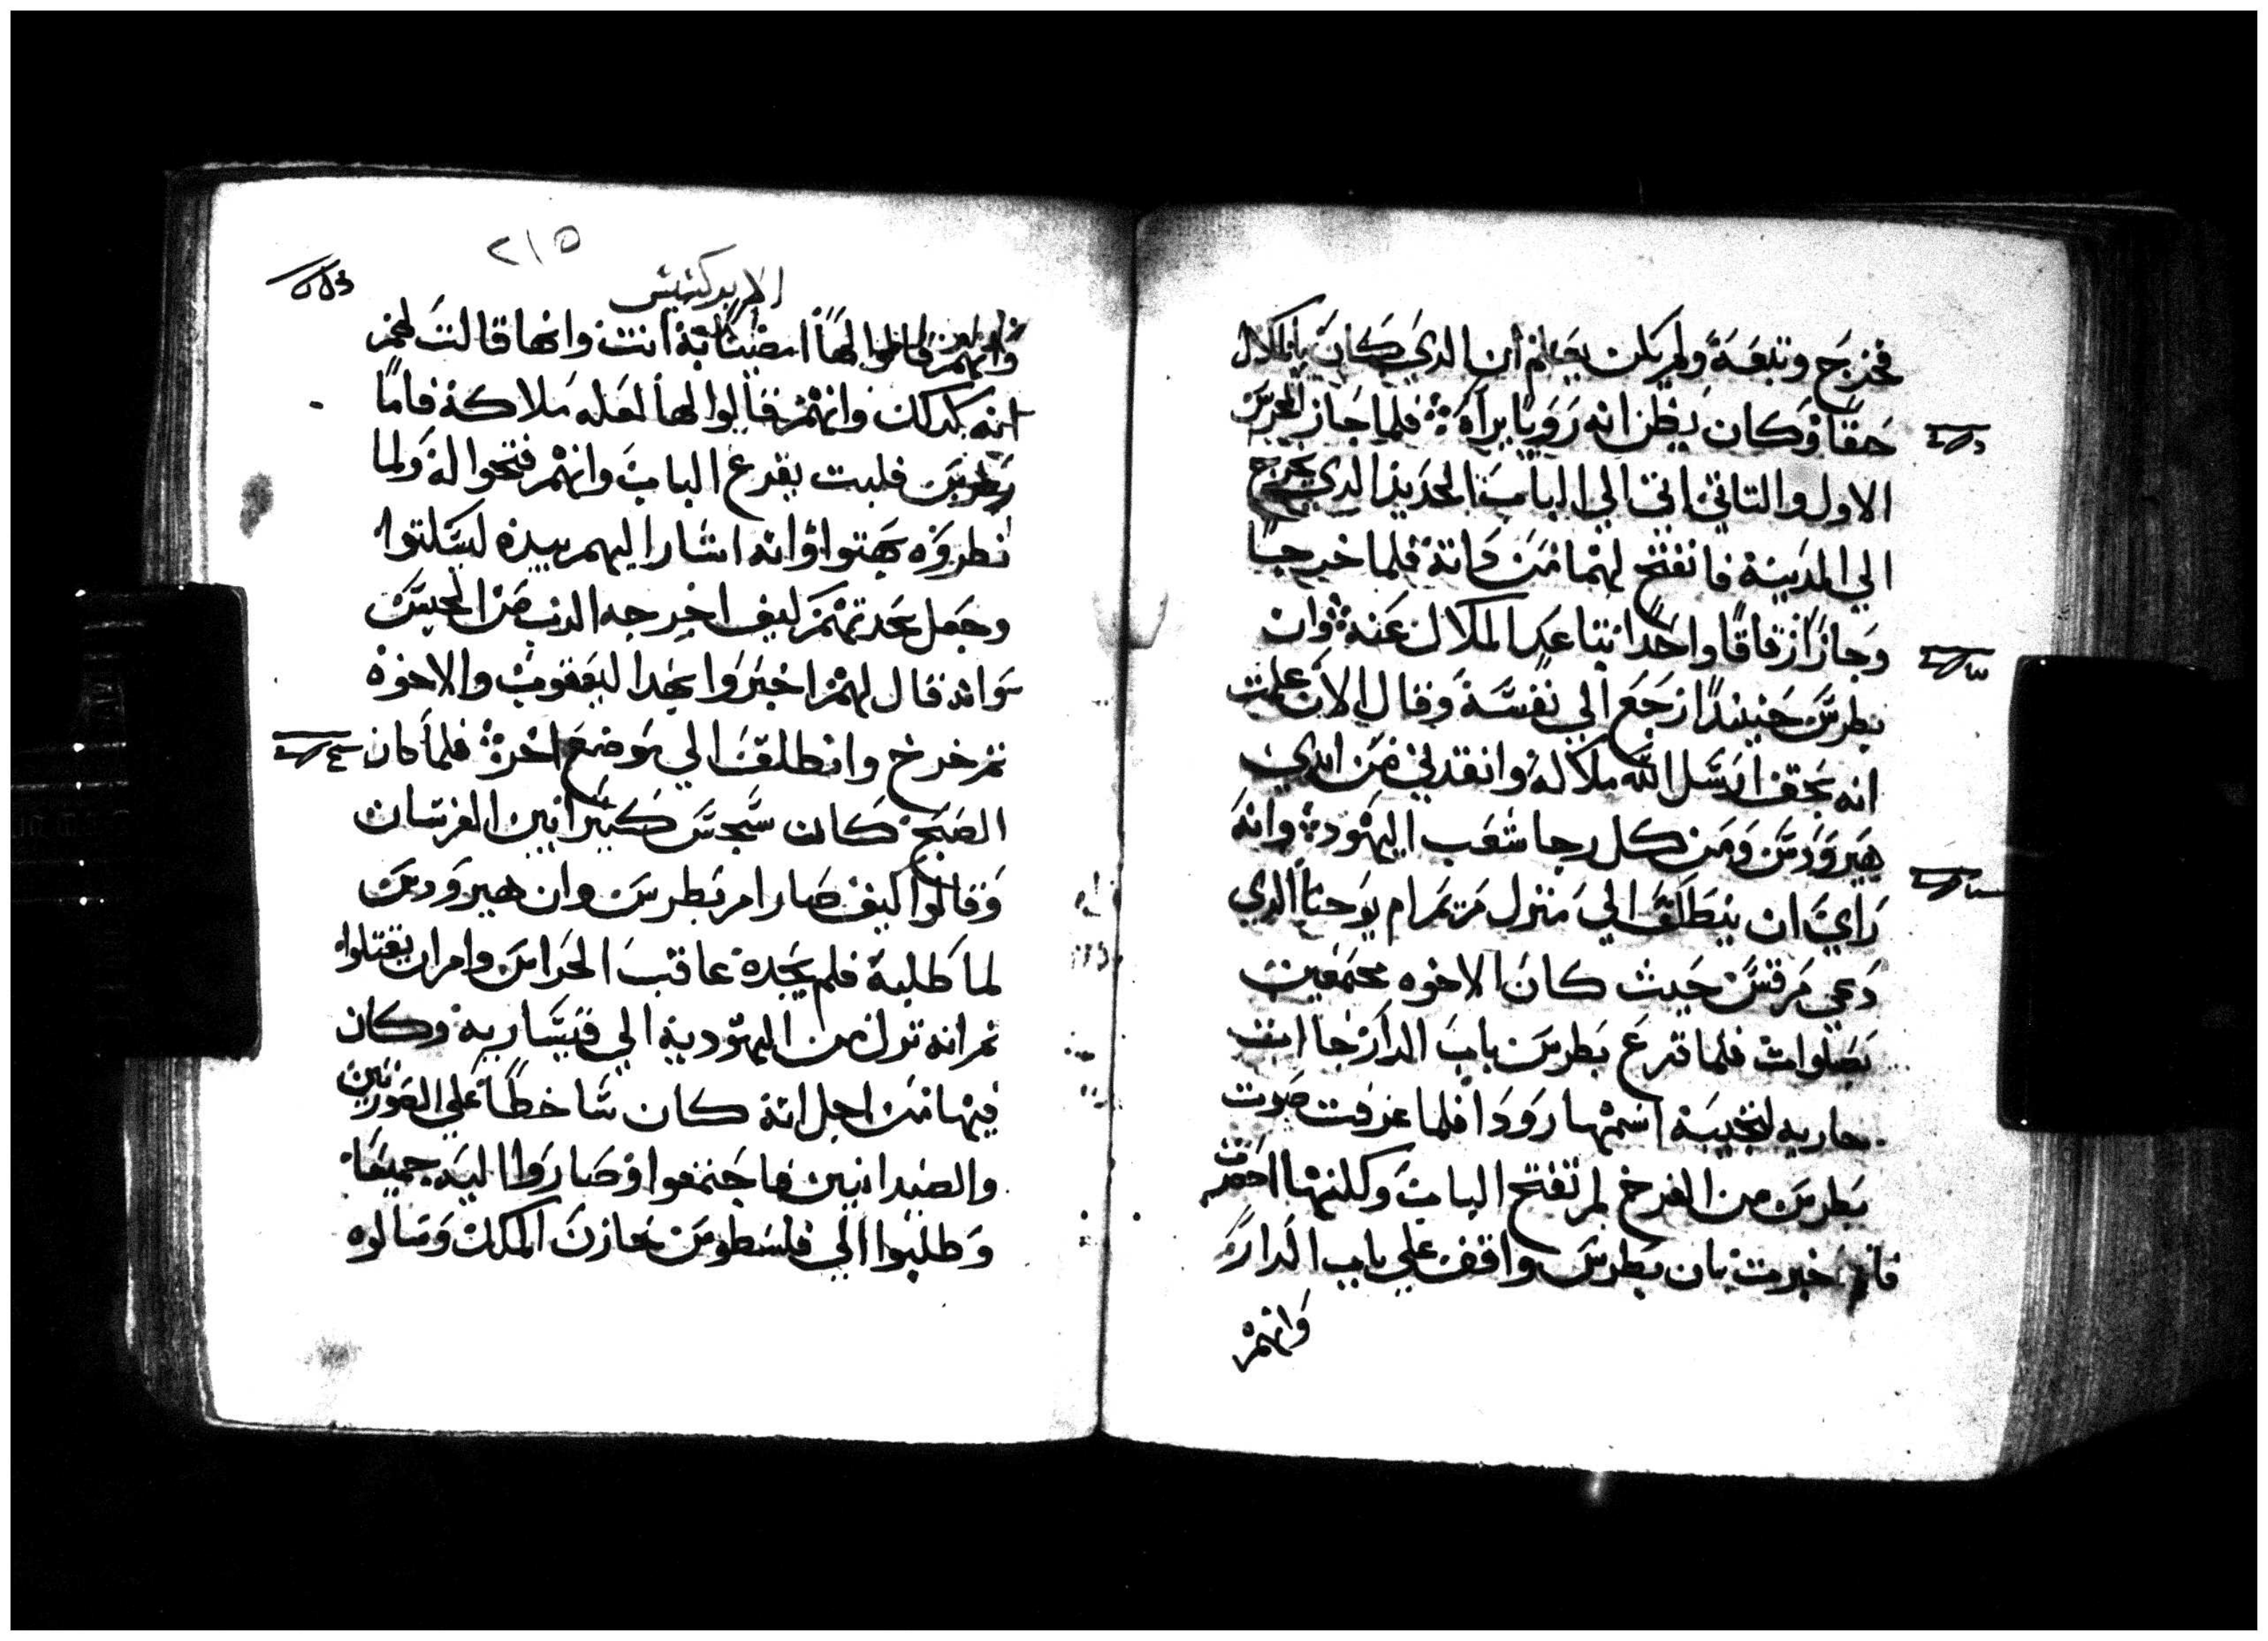 فخرج وتبعه ولم يكن يعلم ان الدي كان بالملاك
حقا وكان يظن انه رويا يراه فلما جاز الحرس
الاول والتاني اتي الي الباب الحديد الدي يخرج
الي المدينة فانفتح لهما من داته فلما خرجا
وجازا زقاقا واحدا تباعد الملاك عنه وان
بطرس حينيدا رجع الي نفسه وقال الان علمت
انه بحق ارسل الله ملاكه وانقدني من ايدي
هيرودس ومن كل رجا شعب اليهود وانه
راي ان ينطلق الي منزل مريم ام يوحنا الدي
دعي مرقس حيث كان الاخوه مجتمعين
بصلوات فلما قرع بطرس باب الدار جات
جاريه لتجيبه اسمها رودا فلما عرفت صوت
بطرس من الفرح لم تفتح الباب وكلنها احضرت
فاخبرت بان بطرس واقف علي باب الدار
وانهم
٢١٥
الابركسيس
وانهم قالوا لها انتي وانها قالت لهم
انه كدلك وانهم قالوا لها لعله ملاكه فاما
بطرس فلبت يقرع الباب وانهم فتحوا له ولما
نظروه بهتوا وانه اشار اليهم بيده ليسكتوا
وجعل يحدتهم كيف اخرجه الرب من الحبس
وانه قال لهم اخبروا بهدا ليعقوب والاخوه
تم خرج وانطلق الي موضع اخر فلما كان
الصبح كان سجس كبيرا بين الفرسان
وقالوا كيف صار امر بطرس وان هيرودس
لما طلبه فلم يجده عاقب الحراس وامر ان يقتلوا
تم انه نزل من اليهودية الي قيسارية وكان
فيها من اجل انه كان ساخطا علي الصورنين
والصيدانيين فاجتمعوا وصاروا اليه جميعا
وطلبوا الي فلسطوس خازن الملك وسالوه